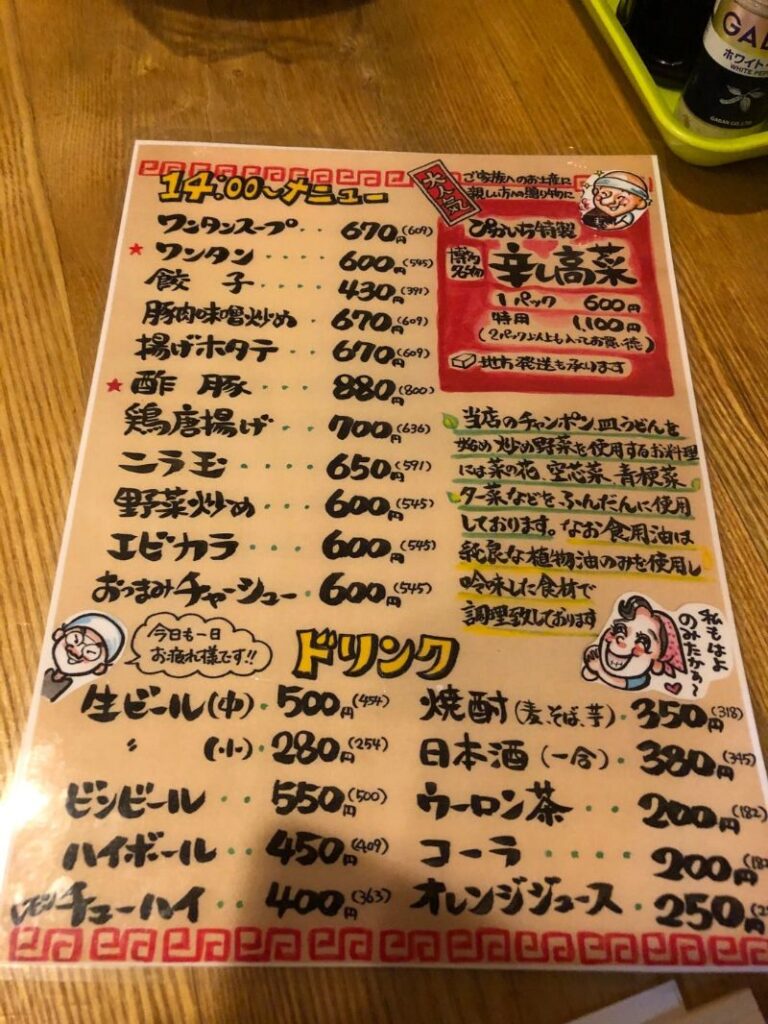 GAB
ホワイト
WHITE PEP
GABAN CO.,LTD
14:00〜メニュー
ワンタンスープ・・670円(609)
★ワンタン・・・・600円(545)
餃子・・・・430円(391)
豚肉味噌炒め・670円(609)
揚げホタテ・・670円(609)
★酢豚・・・・880円(800)
鶏唐揚げ・・700円(636)
ニラ玉・・・650円(591)
野菜炒め・・・600円(545)
エビカラ・・・600円(545)
おつまみチャーシュー・600円(545)
大人気
ご家族へのお土産に
親しい方への贈り物に
ぴかいち特製
博多名物
辛し高菜
1パック 600円
特用 1,100円
(2パックぶん以上も入ってお買い徳)
地方発送も承ります
当店のチャンポン、皿うどんを
始め炒め野菜を使用するお料理
には菜の花、空芯菜、青梗菜、
ター菜などをふんだんに使用
しております。なお食用油は
純良な植物油のみを使用し
吟味した食材で
調理致しております
今日も一日
お疲れ様です!!
私もはよ
のみたかぁ〜
ドリンク
生ビール(中)・500円(454)
〃(小)・280円(254)
ビンビール・・550円(500)
ハイボール・・450円(409)
レモンチューハイ・・400円(363)
焼酎(麦、そば、芋)・350円(318)
日本酒(一合)・380円(345)
ウーロン茶・・200円(182)
コーラ・・・200円(182
オレンジジュース・・250円(2